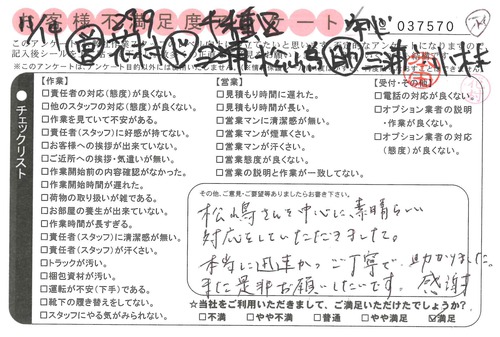 お客様不満足度アンケート
037570
【作業】
□責任者の対応(態度)が良くない。
□他のスタッフの対応(態度)が良くない。
□作業を見ていて不安がある。
□責任者(スタッフ)に好感が持てない。
□お客様への挨拶が出来ていない。
□ご近所への挨拶・気遣いが無い。
□作業開始前の内容確認がなかった。
□作業開始時間が遅れた。
□荷物の取り扱いが雑である。
□お部屋の養生が出来ていない。
□作業時間が長すぎる。
□責任者(スタッフ)に清潔感が無い。
□責任者(スタッフ)が汗くさい。
□トラックが汚い。
□梱包資材が汚い。
□運転が不安(下手)である。
□靴下の履き替えをしてない。
□スタッフにやる気がみられない。
【営業】
□見積もり時間に遅れた。
□見積もり時間が長い。
□営業マンに清潔感が無い。
□営業マンが煙草くさい。
□営業マンが汗くさい。
□営業態度が良くない。
□営業の説明と作業が一致してない。
【受付・その他】
□電話の対応が良くない。
□オプション業者の説明
・作業が良くない。
□オプション業者の対応
(態度)が良くない。
チェックリスト
その他、ご意見・ご要望等ありましたらお書き下さい。
松嶋さんを中心に、素晴らしい
対応をしていただきました。
本当に迅速かつご丁寧で、助かりました。
また是非お願いしたいです。感謝
☆当社をご利用いただきまして、ご満足いただけたでしょうか?
□不満 □やや不満 □普通 □やや満足 ☑満足